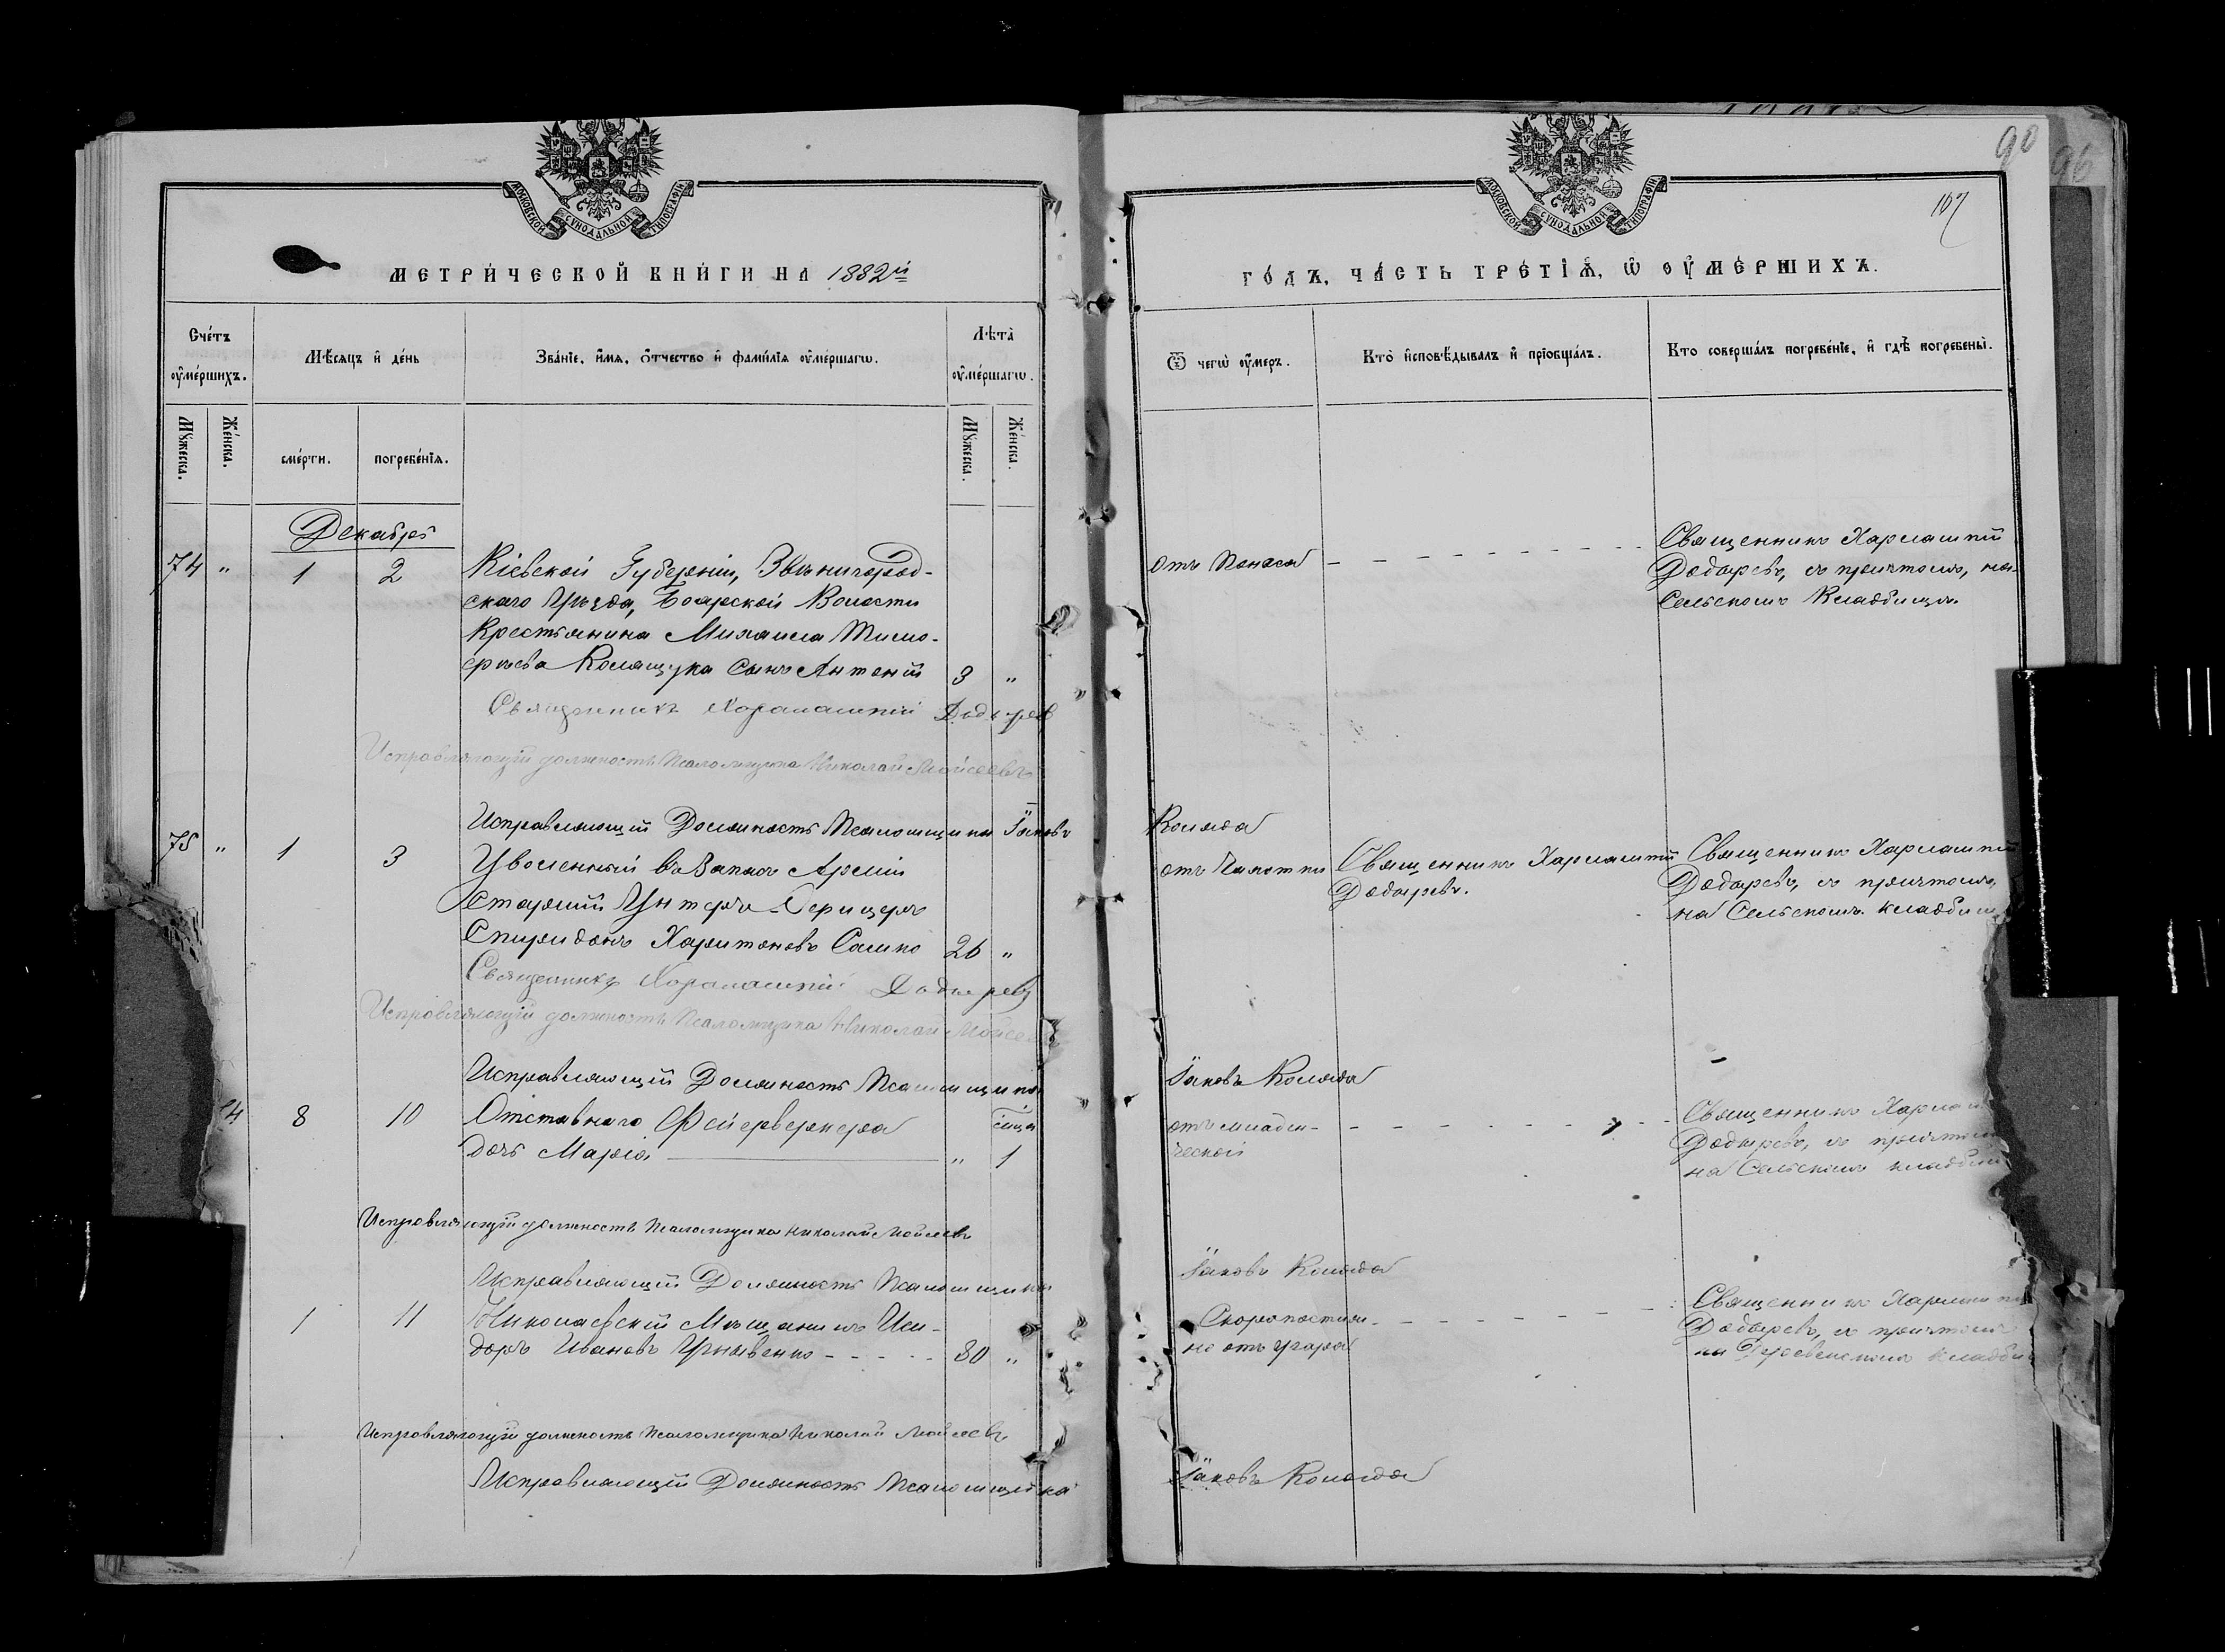 МОСКОВСКОЙ СѴНОДАЛЬНОЙ ТИПОГРАФІИ
МЕТРИ́ЧЕСКОЙ КНИ́ГИ НА 1882й
Сче́тъ оу҆ме́ршихъ.
Мѣ́сяцъ и҆ де́нь
Зва́нїе, и҆́мя, ѻ҆́тчество и҆ фами́лїя оу҆ме́ршагѡ.
Лѣта̀ оу҆ме́ршагѡ.
Мꙋ́жеска.
Же́нска.
сме́рти.
погребе́нїя.
Мꙋ́жеска.
Же́нска.
Декабрь
74 " 1 2 Кіевской Губерніи, Звѣнигород-
скаго Уѣзда, Боярской Волости
Крестьянина Михаила Тимо-
фѣева Колящука сынъ Антоній 3 "
Священникъ Харалампій
Исправляющій должность Псаломщика Николай Мойсеевъ
Исправляющій Должность Псаломщика Іаковъ
75 " 1 3 Уволенный въ Запасъ Арміи
Старшій Унтеръ-Офицеръ
Спиридонъ Харитоновъ Сашко 26 "
Священникъ Харалампій
Исправляющій должность Псаломщика Николай Мойсе
Исправляющій Должность Псаломщика
8 10 Отставнаго Фейерверкера
дочь Марія " 1
Исправляющій должность Псаломщика Николай Мойсеевъ
Исправляющій Должность Псаломщика
1 11 Николаевскій Мѣщанинъ Иси-
доръ Ивановъ 80 "
Исправляющій должность Псаломщика Николай Мойсеевъ
Исправляющій Должность Псаломщика
90
96
107
МОСКОВСКОЙ СѴНОДАЛЬНОЙ ТИПОГРАФІИ
ГО́ДЪ, ЧА́СТЬ ТРЕ́ТІѦ, Ѡ҆ ОУ҆МЕ́РШИХЪ.
Ѿ чегѡ̀ оу҆́меръ.
Кто̀ и҆сповѣ́дывалъ и҆ прїѡбща́лъ.
Кто̀ соверша́лъ погребе́нїе, и҆ гдѣ̀ погребены̀.
отъ Поноса
Священникъ Харлампій
съ причтомъ, на
Сельскомъ Кладбищѣ.
Коляда
отъ Чахотки
Священникъ Харлампій
Священникъ Харлампій
съ причтомъ,
на Сельскомъ кладбищ
Іаковъ Коляда
отъ младен-
ческой
Священникъ Харлам
съ причтом
на Сельскомъ кладбищ
Іаковъ Коляда
Скоропостиж-
но отъ угара
Священникъ Харламп
съ причтомъ
на Деревенскомъ кладби
Іаковъ Коляда